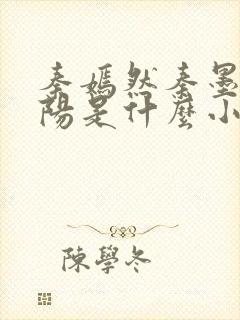 秦嫣然秦墨
陽是什麼小
陳學冬